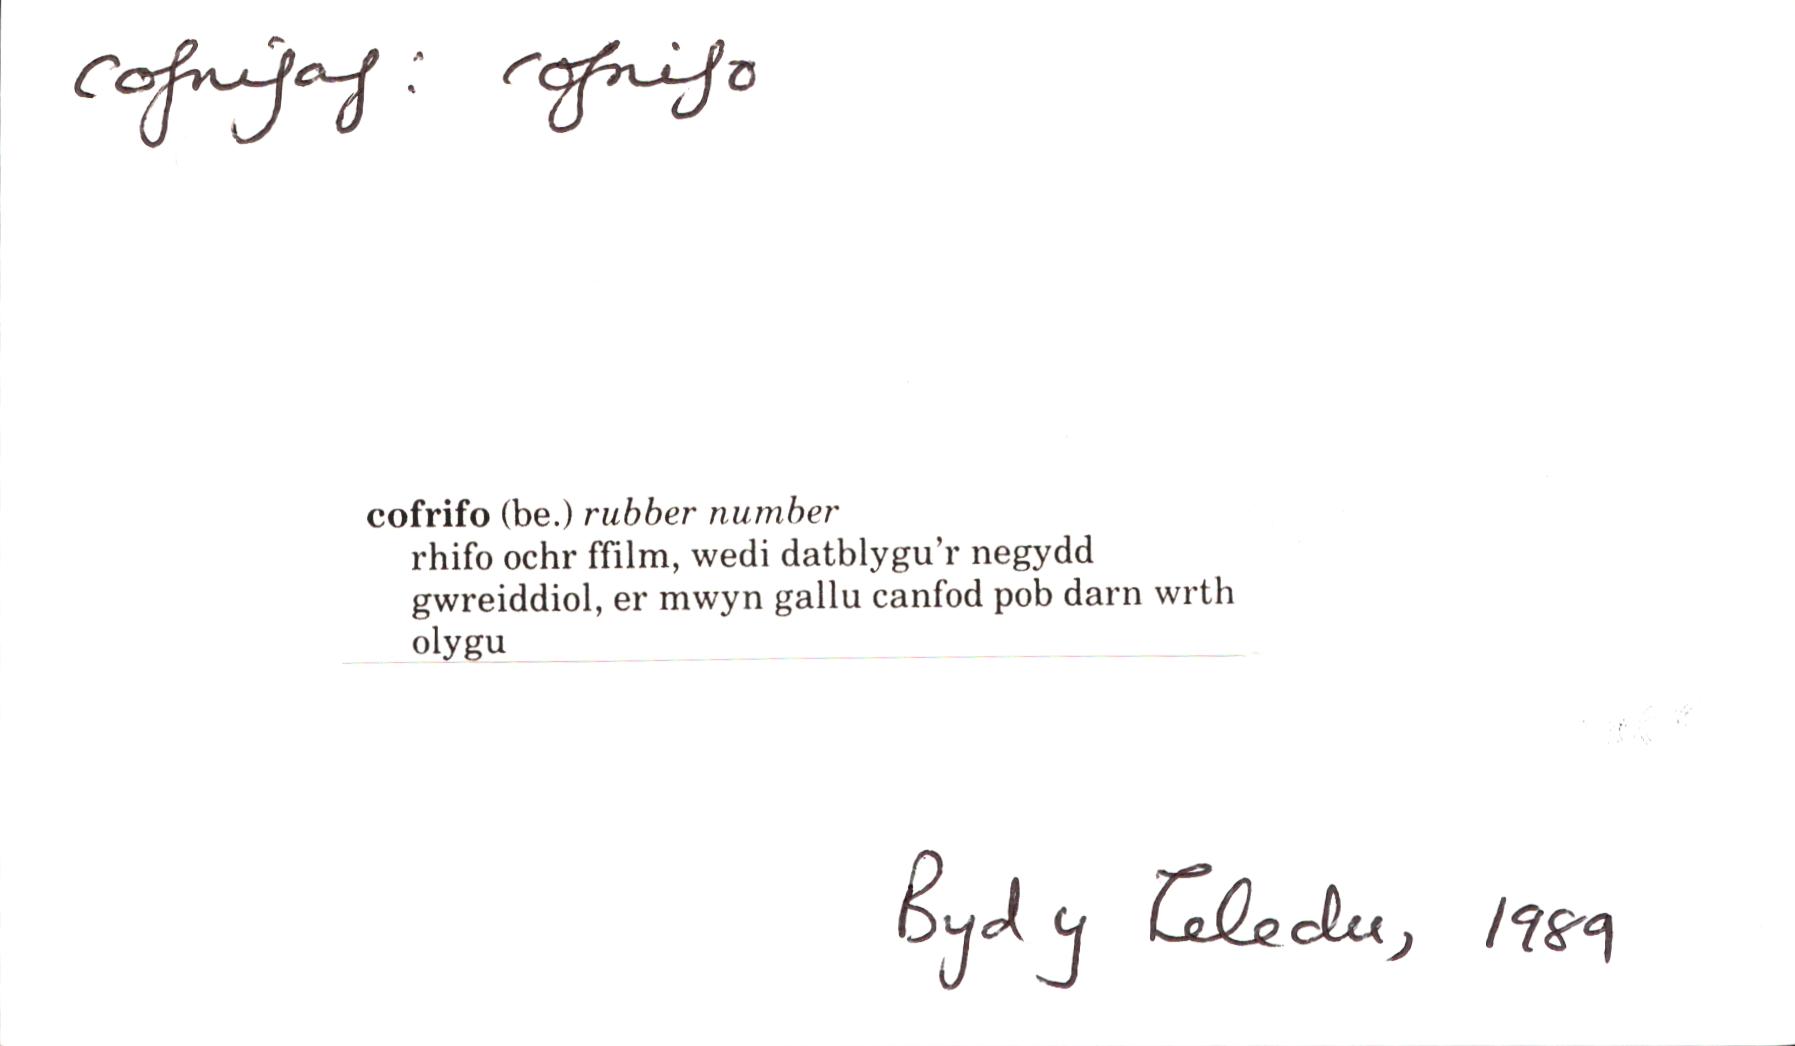 cofrifaf: cofrifo
cofrifo (be.) rubber number
rhifo ochr ffilm, wedi datblygu'r negydd
gwreiddiol, er mwyn gallu canfod pob darn wrth
olygu
Byd y Teledu, 1989